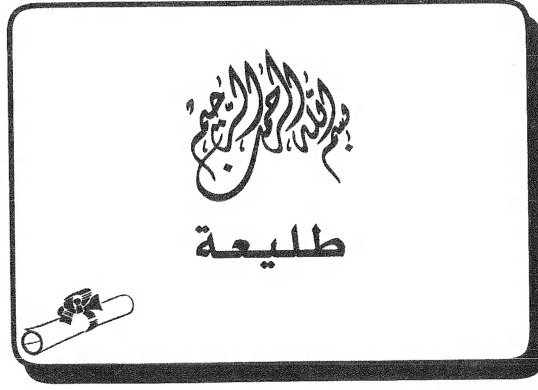 بسم الله الرحمن الرحيم
طليعة